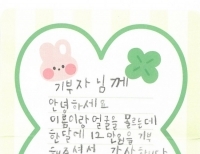 기부자 님께
안녕하세요
이름이랑 얼굴을 모르는데
한달에 12만원을 기부
해주셔서 감사합니다